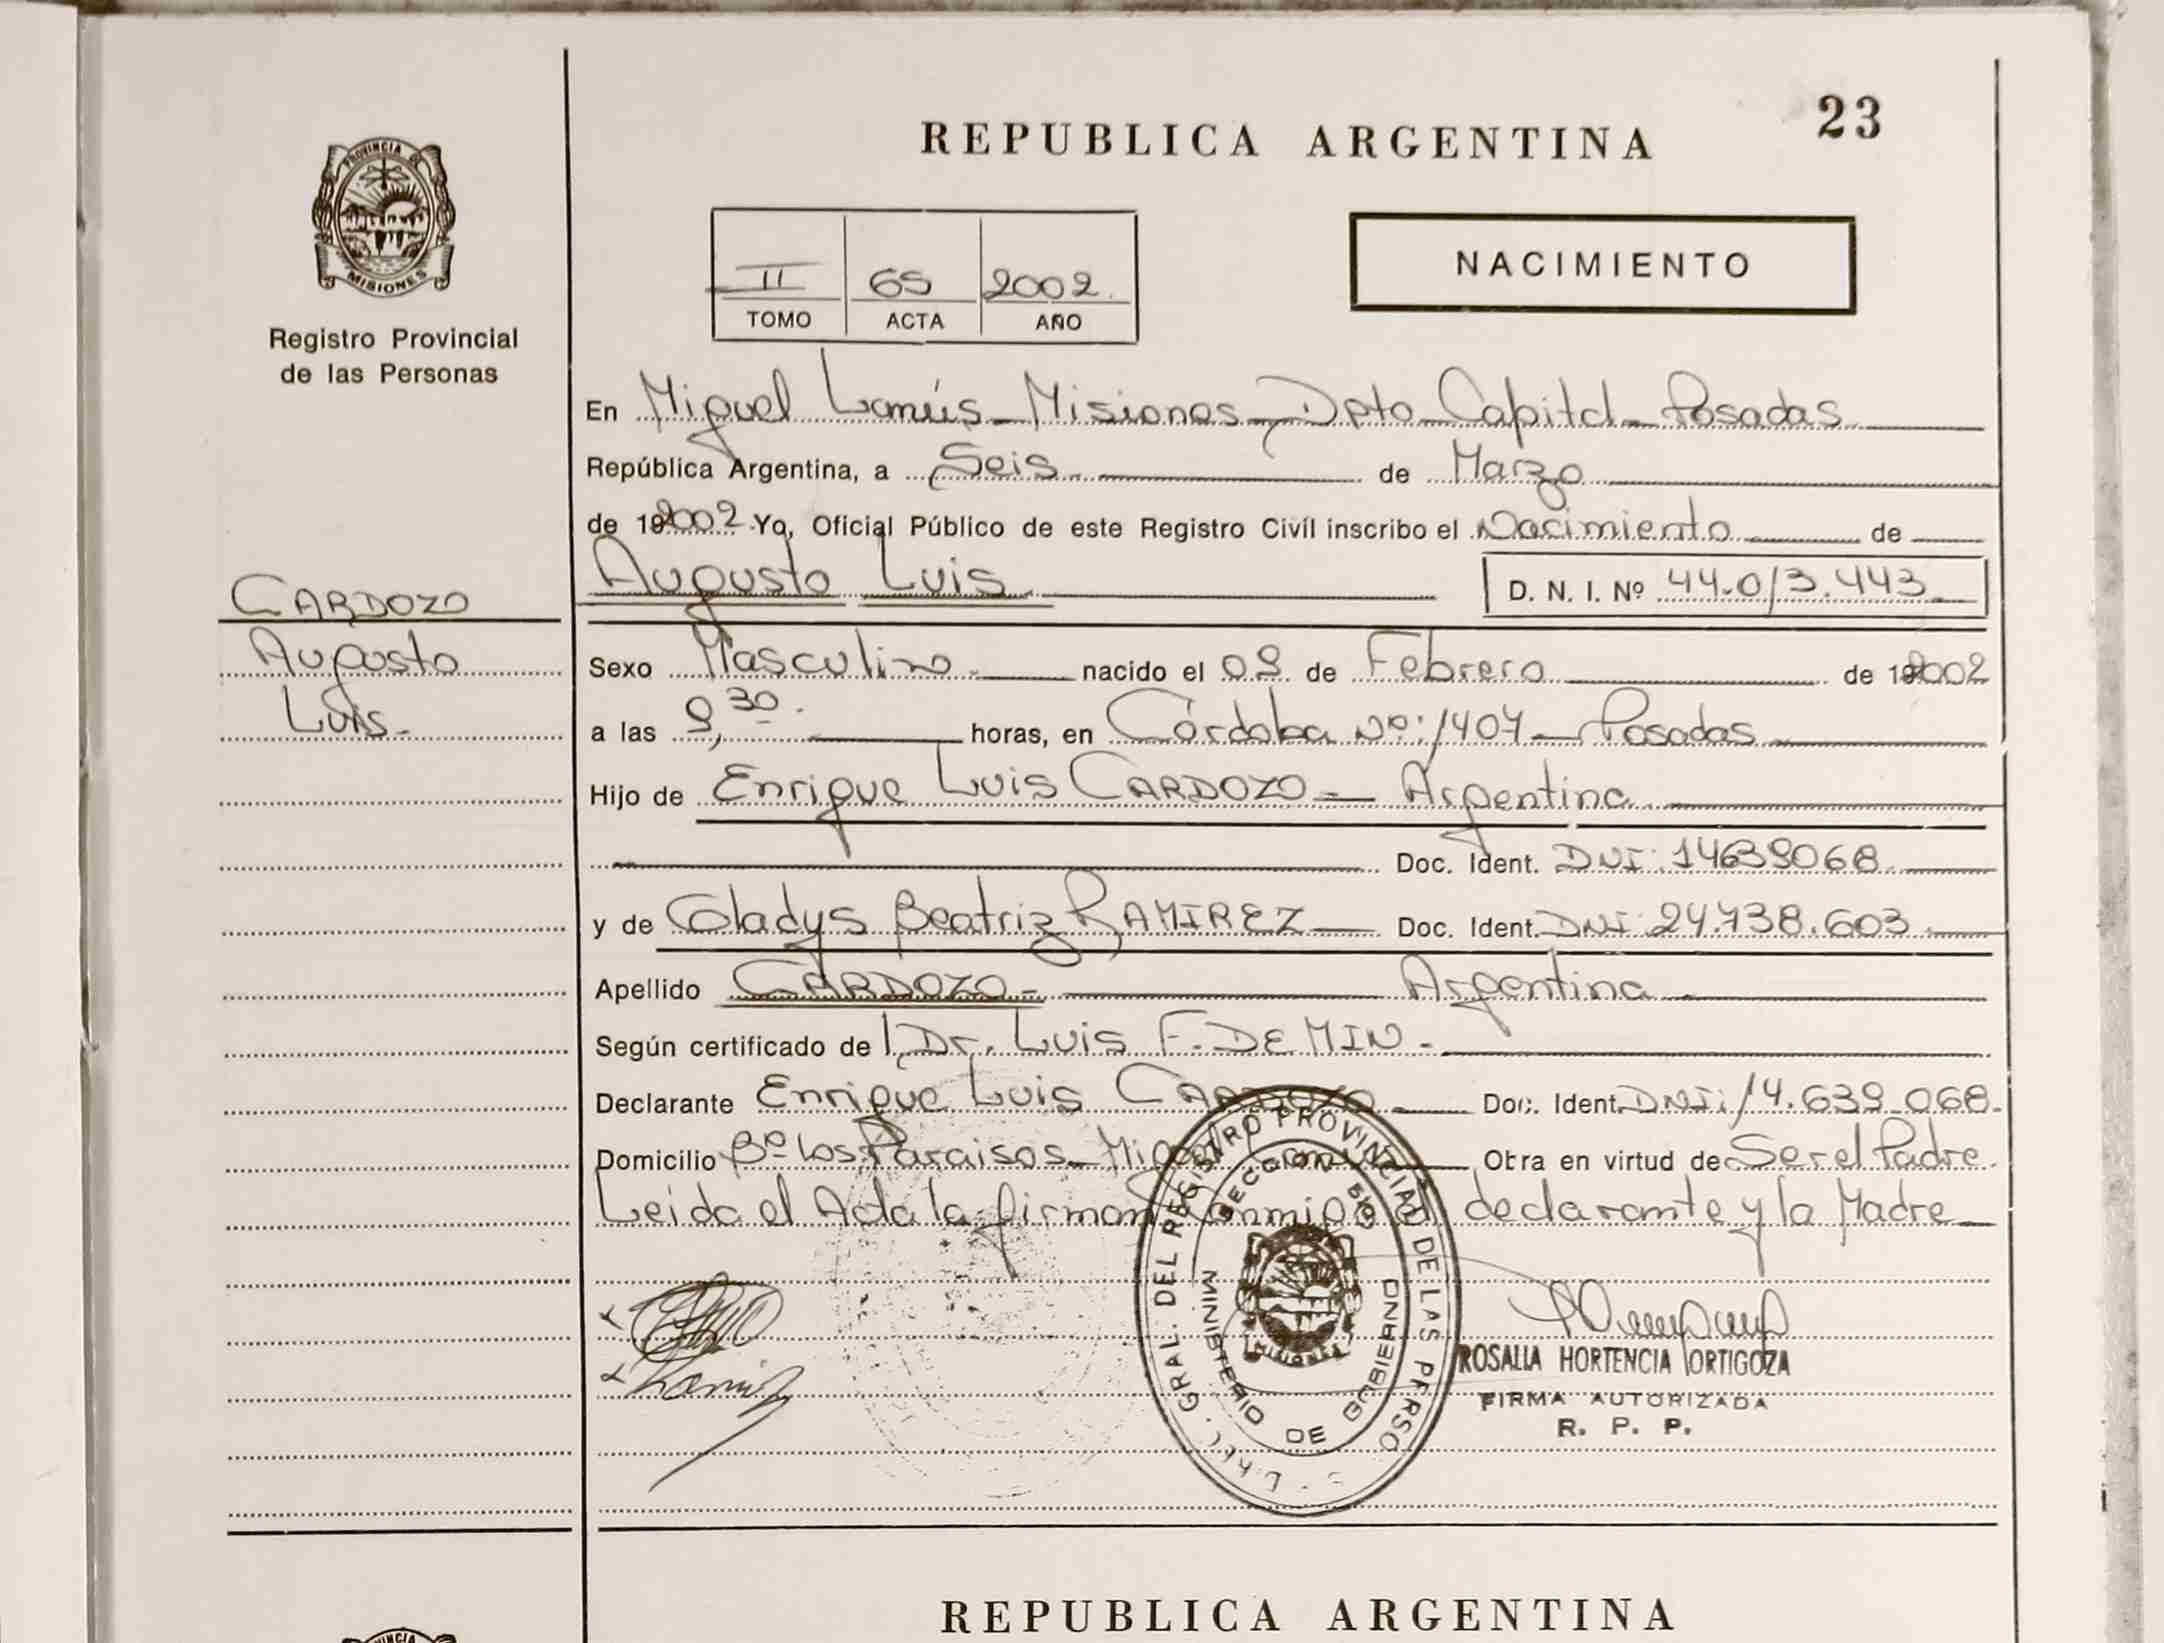 23
REPUBLICA ARGENTINA
PROVINCIA DE
MISIONES
Registro Provincial
de las Personas
II 65 2002.
TOMO ACTA AÑO
NACIMIENTO
En Miguel Lanús - Misiones - Dpto Capital - Posadas
República Argentina, a Seis de Marzo
de 2002 Yo, Oficial Público de este Registro Civíl inscribo el Nacimiento de
Augusto Luis D. N. I. Nº 44.013.443
CARDOZO
Augusto
Luis.
Sexo Masculino nacido el 09 de Febrero de 2002
a las 9,30. horas, en Córdoba Nº: 1407 - Posadas
Hijo de Enrique Luis CARDOZO - Argentina
Doc. Ident. DNI: 14639068
y de Gladys Beatriz RAMIREZ Doc. Ident. DNI 24.738.603
Apellido CARDOZO - Argentina
Según certificado de Dr. Luis F. DE MIN -
Declarante Enrique Luis CARDOZO Doc. Ident. DNI: 14.639.068
Domicilio Bº Los Paraisos - Miguel Obra en virtud de Ser el Padre
Leida el Acta la firman conmigo el declarante y la Madre
DIREC. GRAL. DEL REGISTRO PROVINCIAL DE LAS PERSONAS
MINISTERIO DE GOBIERNO
MISIONES
ROSALIA HORTENCIA ORTIGOZA
FIRMA AUTORIZADA
R. P. P.
REPUBLICA ARGENTINA